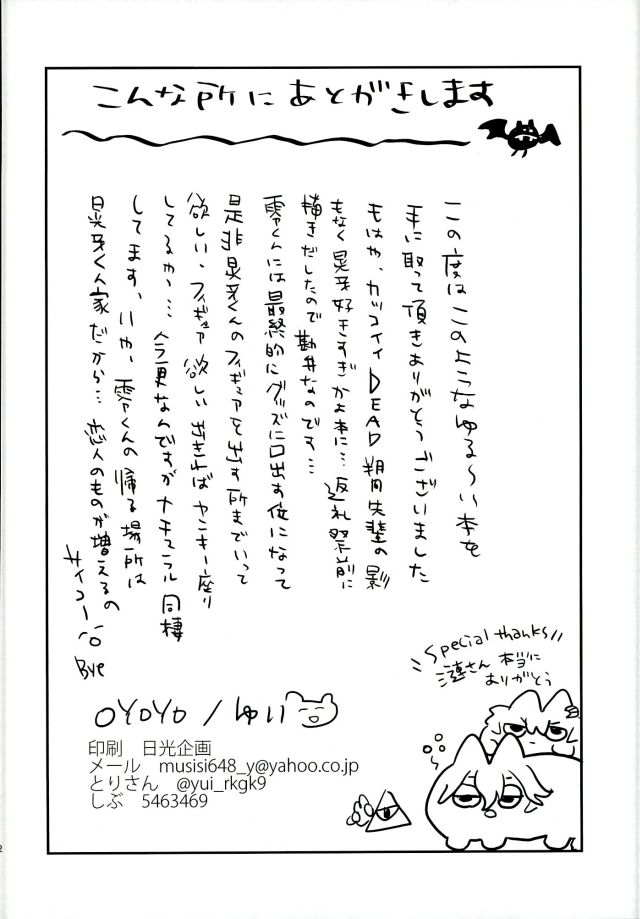 こんな所にあとがきします
この度はこのようなゆる〜い本を
手に取って頂きありがとうございました
もはや、カッコイイDEAD朔間先輩の影
もなく晃牙好きすぎかよ本に…返礼祭前に
描きだしたので勘弁なのです…
零くんには最終的にグッズに口出す位になって
是非晃牙くんのフィギュアを出す所までいって
欲しい、フィギュア欲しい出きればヤンキー座り
してるやつ…今更なんですがナチュラル同棲
してます、いや、零くんの帰る場所は
晃牙くん家だから…恋人のものが増えるの
サイコー
Bye
Special thanks!!
さん本当に
ありがとう
OYOYO/ゆい
印刷 日光企画
メール musisi648_y@yahoo.co.jp
とりさん @yui_rkgk9
しぶ 5463469
2